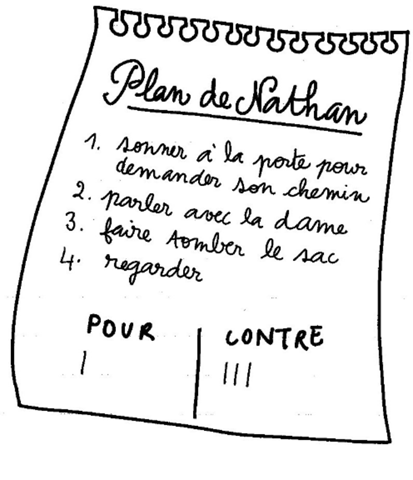 Plan de Nathan
1. sonner à la porte pour
demander son chemin
2. parler avec la dame
3. faire tomber le sac
4. regarder
POUR CONTRE
I III